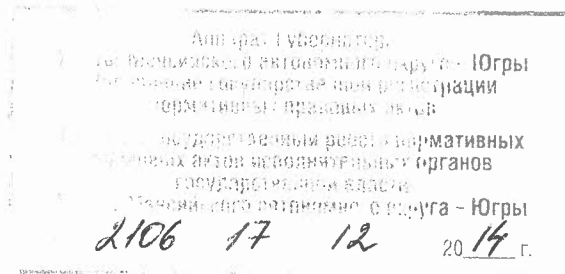 Аппарат Губернатора
Мансийского автономного округа – Югры
государственной регистрации
нормативных правовых актов
государственный реестр нормативных
правовых актов исполнительных органов
государственной власти
Мансийского автономного округа – Югры
2106 17 12 2014 г.